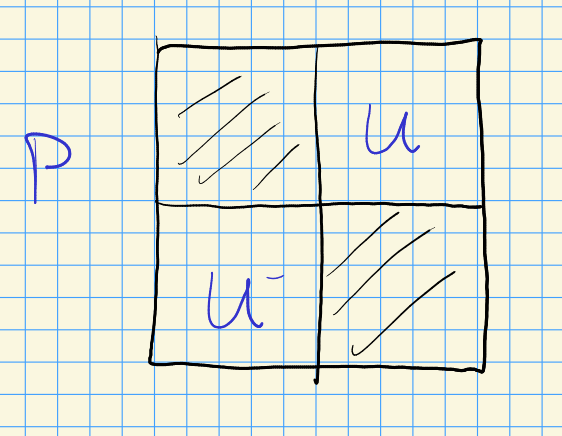 P
U
U⁻